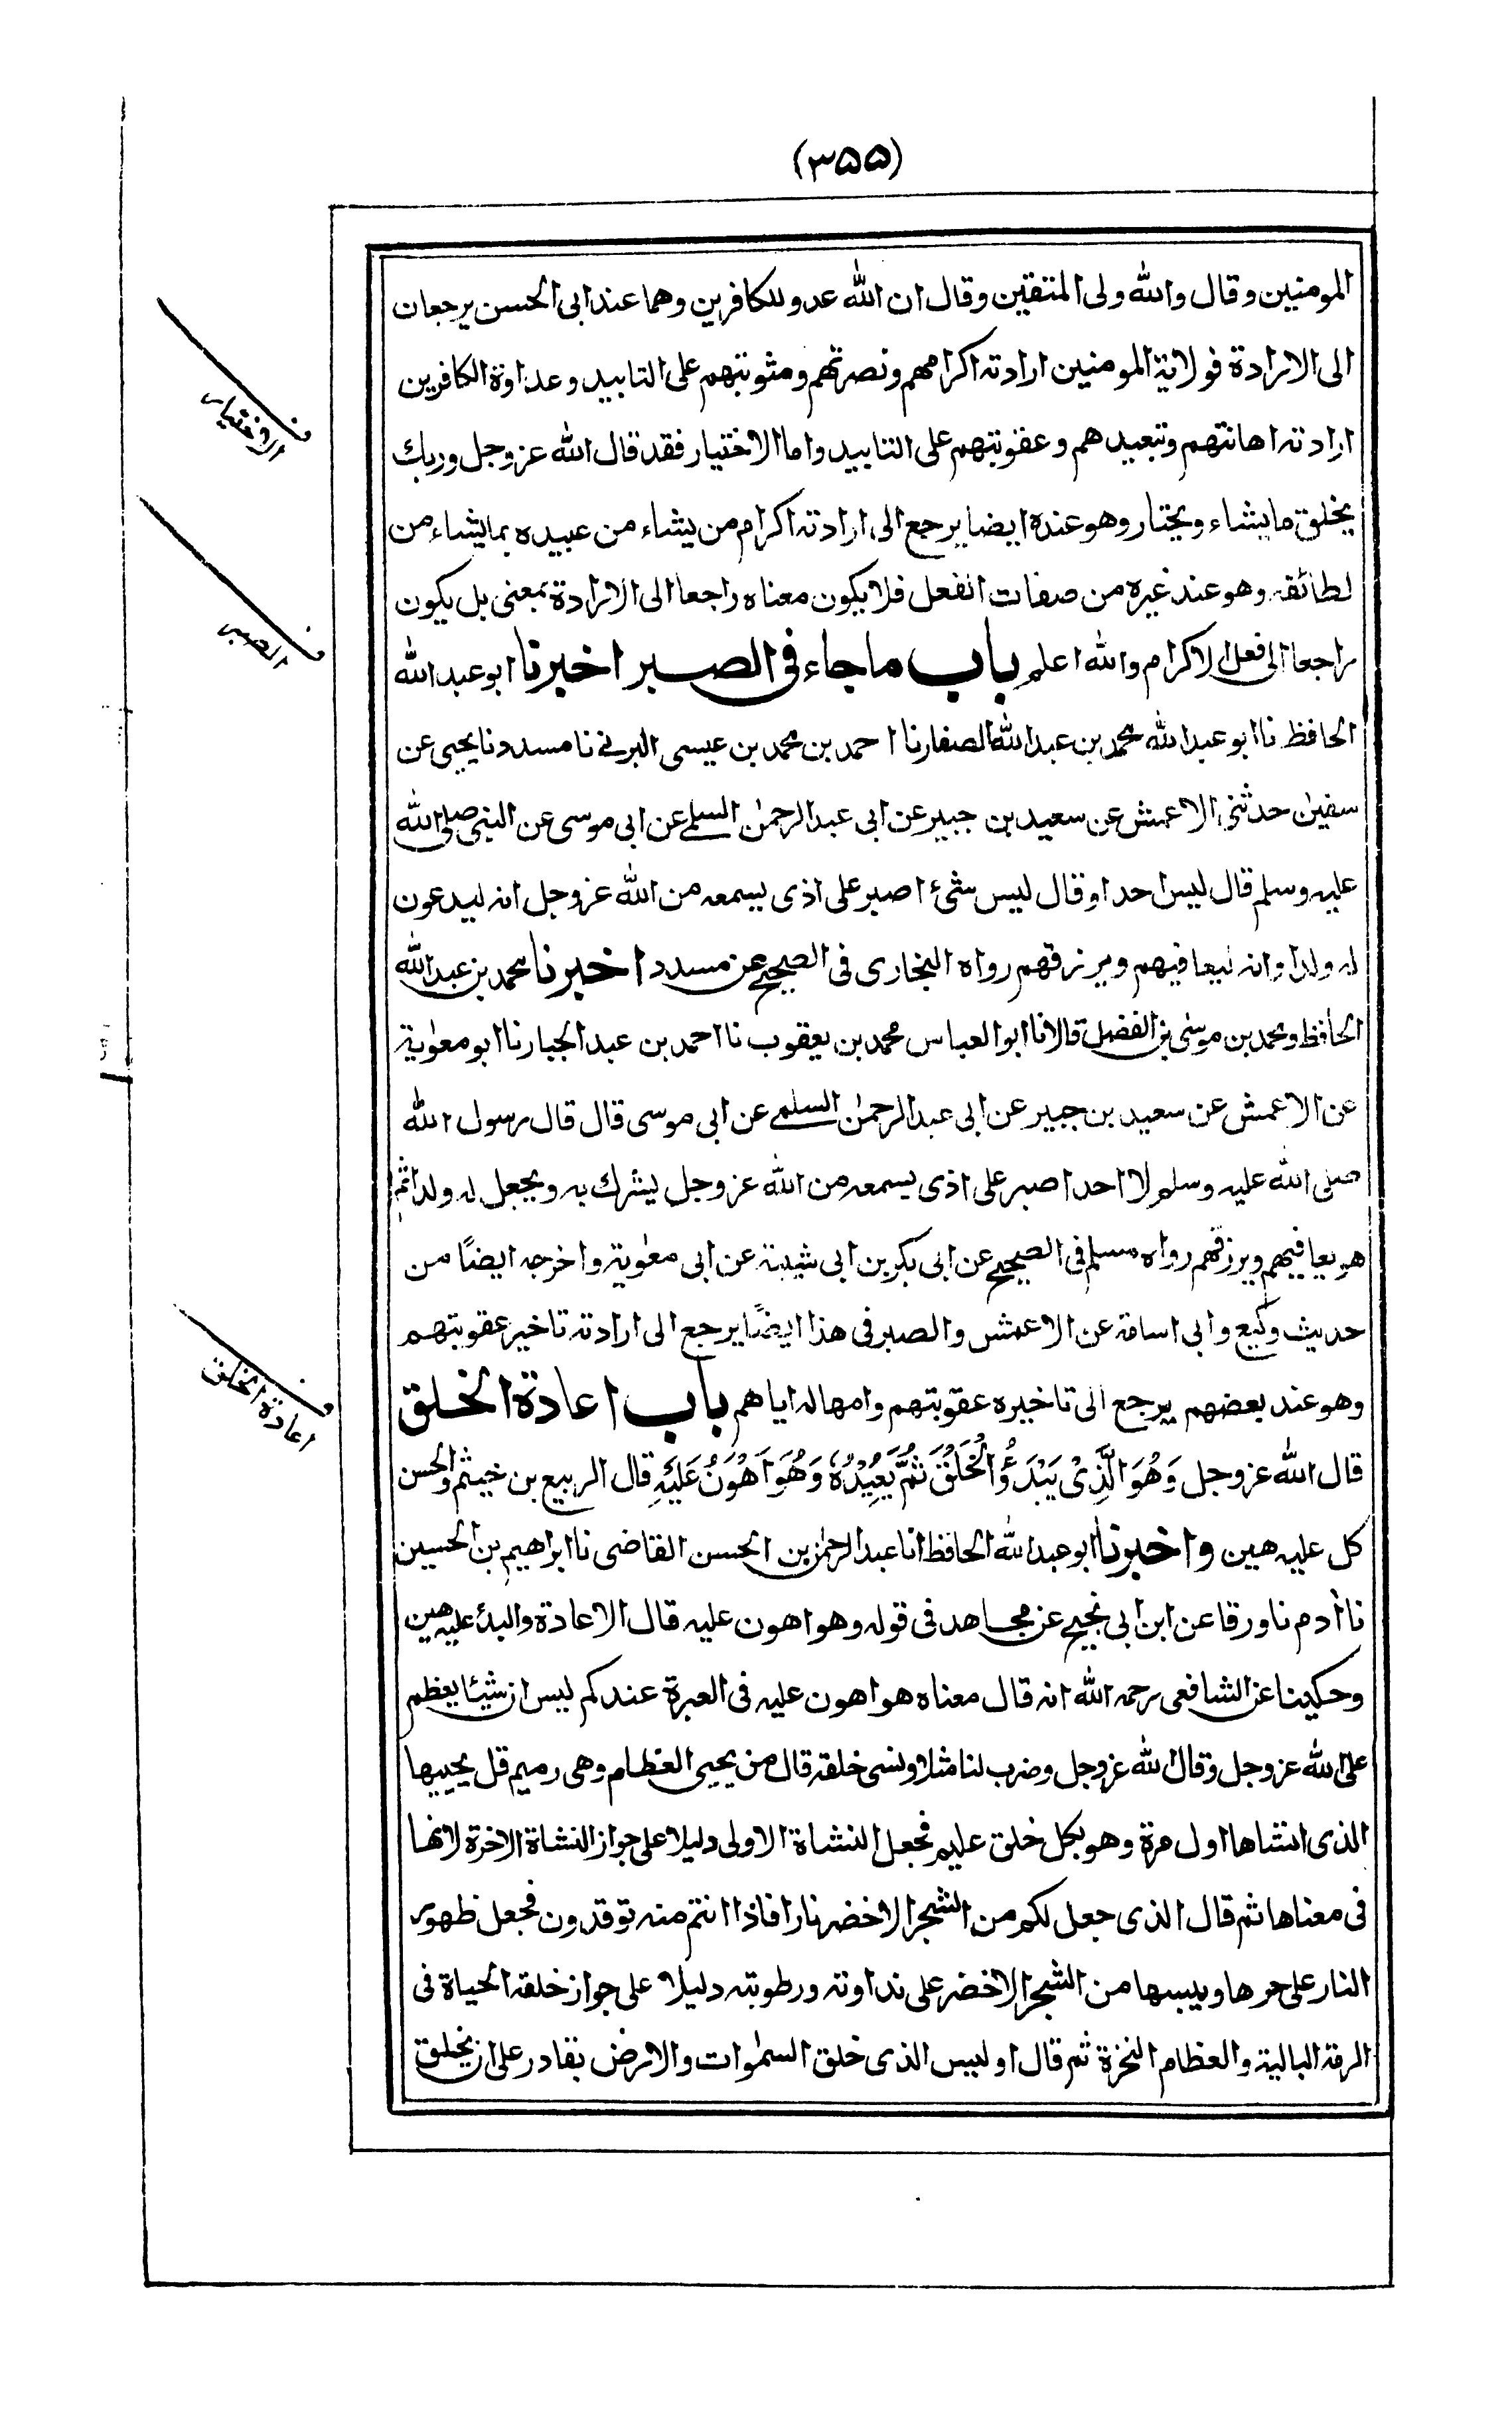 (۳۵۵)
المومنين وقال والله ولى المتقين وقال ان الله عدو للكافرين وهما عند ابى الحسن يرجعان
الى الارادة فولاية المومنين ارادته اكرامهم ونصرتهم ومثوبتهم على التابيد وعداوة الكافرين
ارادته اهانتهم وتبعيدهم وعقوبتهم على التابيد واما الاختيار فقد قال الله عزوجل وربك
يخلق مايشاء ويختار وهو عنده ايضا يرجع الى ارادته اكرام من يشاء من عبيده بمايشاء من
لطائفه وهو عند غيره من صفات الفعل فلا يكون معناه راجعا الى الارادة بمعنى بل يكون
راجعا الى فعل الاكرام والله اعلم باب ماجاء فى الصبر اخبرنا ابو عبد الله
الحافظ نا ابو عبد الله محمد بن عبد الله الصفار نا احمد بن محمد بن عيسى البرتى نا مسدد نا يحيى عن
سفيٰن حدثنى الاعمش عن سعيد بن جبير عن ابى عبد الرحمٰن السلمى عن ابى موسى عن النبى صلى الله
عليه وسلم قال ليس احد او قال ليس شىء اصبر على اذى يسمعه من الله عزوجل انه ليدعون
له ولدا وانه ليعافيهم ويرزقهم رواه البخارى فى الصحيح عن مسدد اخبرنا محمد بن عبد الله
الحافظ ومحمد بن موسى بن الفضل قالا نا ابو العباس محمد بن يعقوب نا احمد بن عبد الجبار نا ابو معٰوية
عن الاعمش عن سعيد بن جبير عن ابى عبد الرحمٰن السلمى عن ابى موسى قال قال رسول الله
صلى الله عليه وسلم لا احد اصبر على اذى يسمعه من الله عزوجل يشرك به ويجعل له ولدا ثم
هو يعافيهم ويرزقهم رواه مسلم فى الصحيح عن ابى بكر بن ابى شيبة عن ابى معٰوية واخرجه ايضًا من
حديث وكيع وابى اسامة عن الاعمش والصبر فى هذا ايضًا يرجع الى ارادته تاخير عقوبتهم
وهو عند بعضهم يرجع الى تاخيره عقوبتهم وامهاله اياهم باب اعادة الخلق
قال الله عزوجل وَهُوَ الَّذِىْ يَبْدَؤُا الْخَلْقَ ثُمَّ يُعِيْدُهٗ وَهُوَ اَهْوَنُ عَلَيْهِ قال الربيع بن خيثم والحسن
كل عليه هين واخبرنا ابو عبد الله الحافظ انا عبد الرحمٰن بن الحسن القاضى نا ابراهيم بن الحسين
نا اٰدم نا ورقا عن ابن ابى نجيح عن مجاهد فى قوله وهو اهون عليه قال الاعادة والبدء عليه هين
وحكينا عن الشافعى رحمه الله انه قال معناه هو اهون عليه فى العبرة عندكم ليس ان شيئا يعظم
على الله عزوجل وقال الله عزوجل وضرب لنا مثلا ونسى خلقه قال من يحيى العظام وهى رميم قل يحييها
الذى انشاها اول مرة وهو بكل خلق عليم فجعل النشاة الاولى دليلا على جواز النشاة الاخرة لانها
فى معناها ثم قال الذى جعل لكم من الشجر الاخضر نارا فاذا انتم منه توقدون فجعل ظهور
النار على حرها ويبسها من الشجر الاخضر على نداوته ورطوبته دليلا على جواز خلقه الحياة فى
الرمة البالية والعظام النخرة ثم قال اوليس الذى خلق السمٰوات والارض بقادر على ان يخلق
الاختيار
الصبر
اعادة الخلق